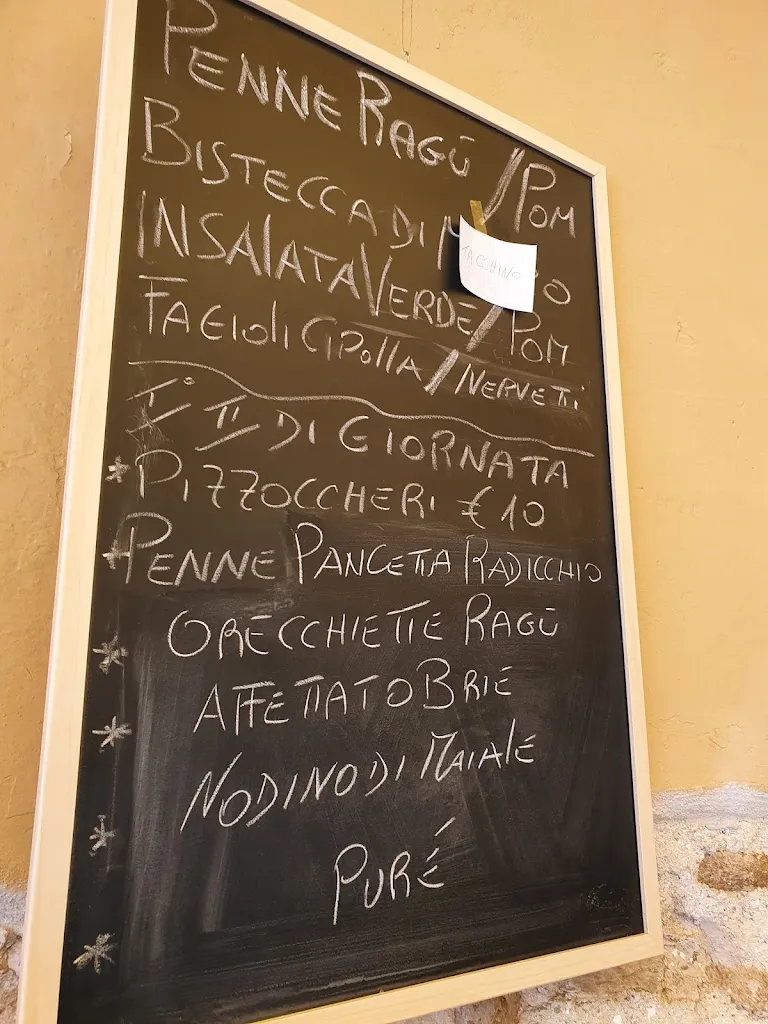 PENNE RAGÙ / POM
BISTECCA DI
TACCHINO
INSALATA VERDE / POM
FAGIOLI CIPOLLA / NERVETTI
I° II DI GIORNATA
* PIZZOCCHERI € 10
* PENNE PANCETTA RADICCHIO
* ORECCHIETTE RAGÙ
* AFFETTATO BRIE
* NODINO DI MAIALE
* PURÉ